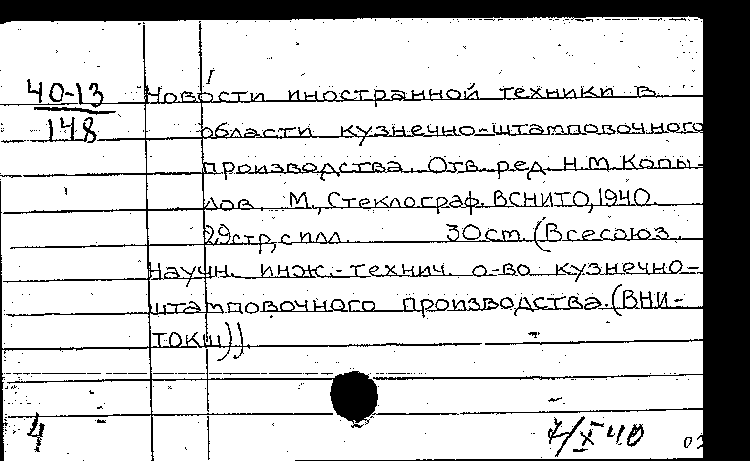 40-13
148
Новости иностранной техники в
области кузнечно-штамповочного
производства. Отв. ред. Н.М. Копы-
лов. М., Стеклограф. ВСНИТО, 1940.
29стр, с илл. 30см. (Всесоюз.
Научн. инж.-технич. о-во кузнечно-
штамповочного производства. (ВНИ-
ТОКШ)).
4
7/X 40